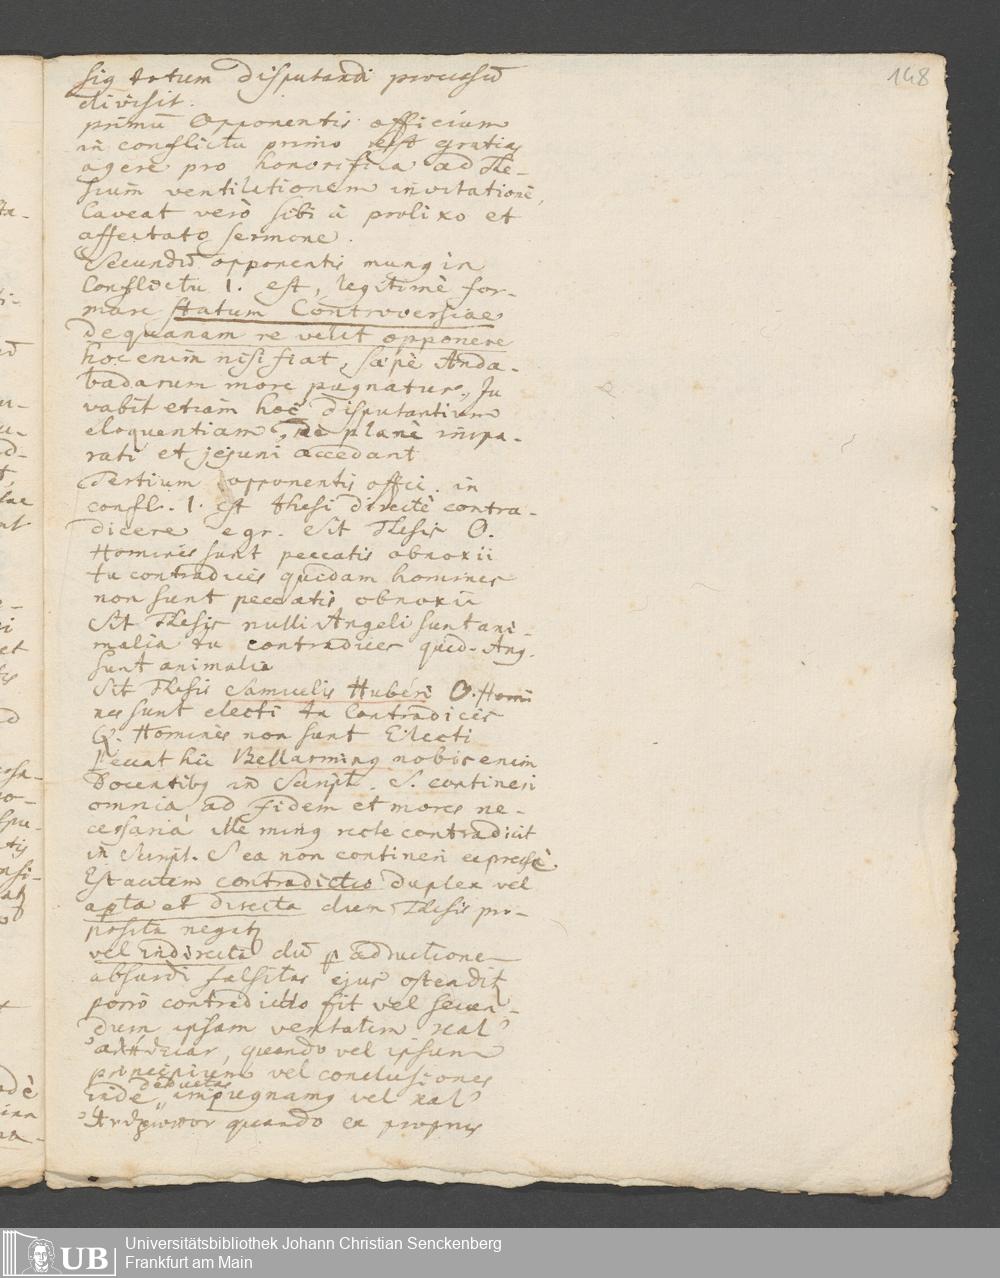 148
sig totum disputandi processū
divisit.
primū Opponentis officium
in conflictu primo est gratias
agere pro honorifica ad The-
sium ventilationem invitatione,
Caveat verò sibi à prolixo et
affectato sermone.
Secundū opponentis munq in
Conflictu 1. est, legitimè for-
mare statum Controversiae
de quanam re velit opponere
hoc enim nisi fiat, sæpè Anda-
badarum more pugnatur, Ju
vabit etiam hoc disputantium
eloquentiam, ne planè impa-
rati et jejuni accedant
Tertium opponentis offici. in
confl. 1. est thesi directè contra-
dicere egr. Sit Thesis O.
Homines sunt peccatis obnoxii
tu contradices quidam homines
non sunt peccatis obnoxii
Sit Thesis nulli Angeli sunt ani-
malia tu contradices quid. Ang.
sunt animalia
Sit Thesis Samuelis Huberi O. Homi
nes sunt electi tu Contradices
Q. Homines non sunt Electi
Peccat hic Bellarminq nobis enim
Docentibq in Script. S. contineri
omnia ad fidem et mores ne-
cessaria ille minq recte contradicit
in Script. S ea non contineri expressè.
Est autem contradictio duplex vel
apta et directa dum Thesis pro-
posita negat
vel indirecta dū p adductionem
absurdi falsitas ejus ostendit
porrò contradictio fit vel secun-
dum ipsam veritatem κατ'
ἀλήθειαν, quando vel ipsum
principium vel conclusiones
inde deductas impugnamq vel κατ'
ἄνθρωπον quando ex propriis
Universitätsbibliothek Johann Christian Senckenberg
Frankfurt am Main
UB